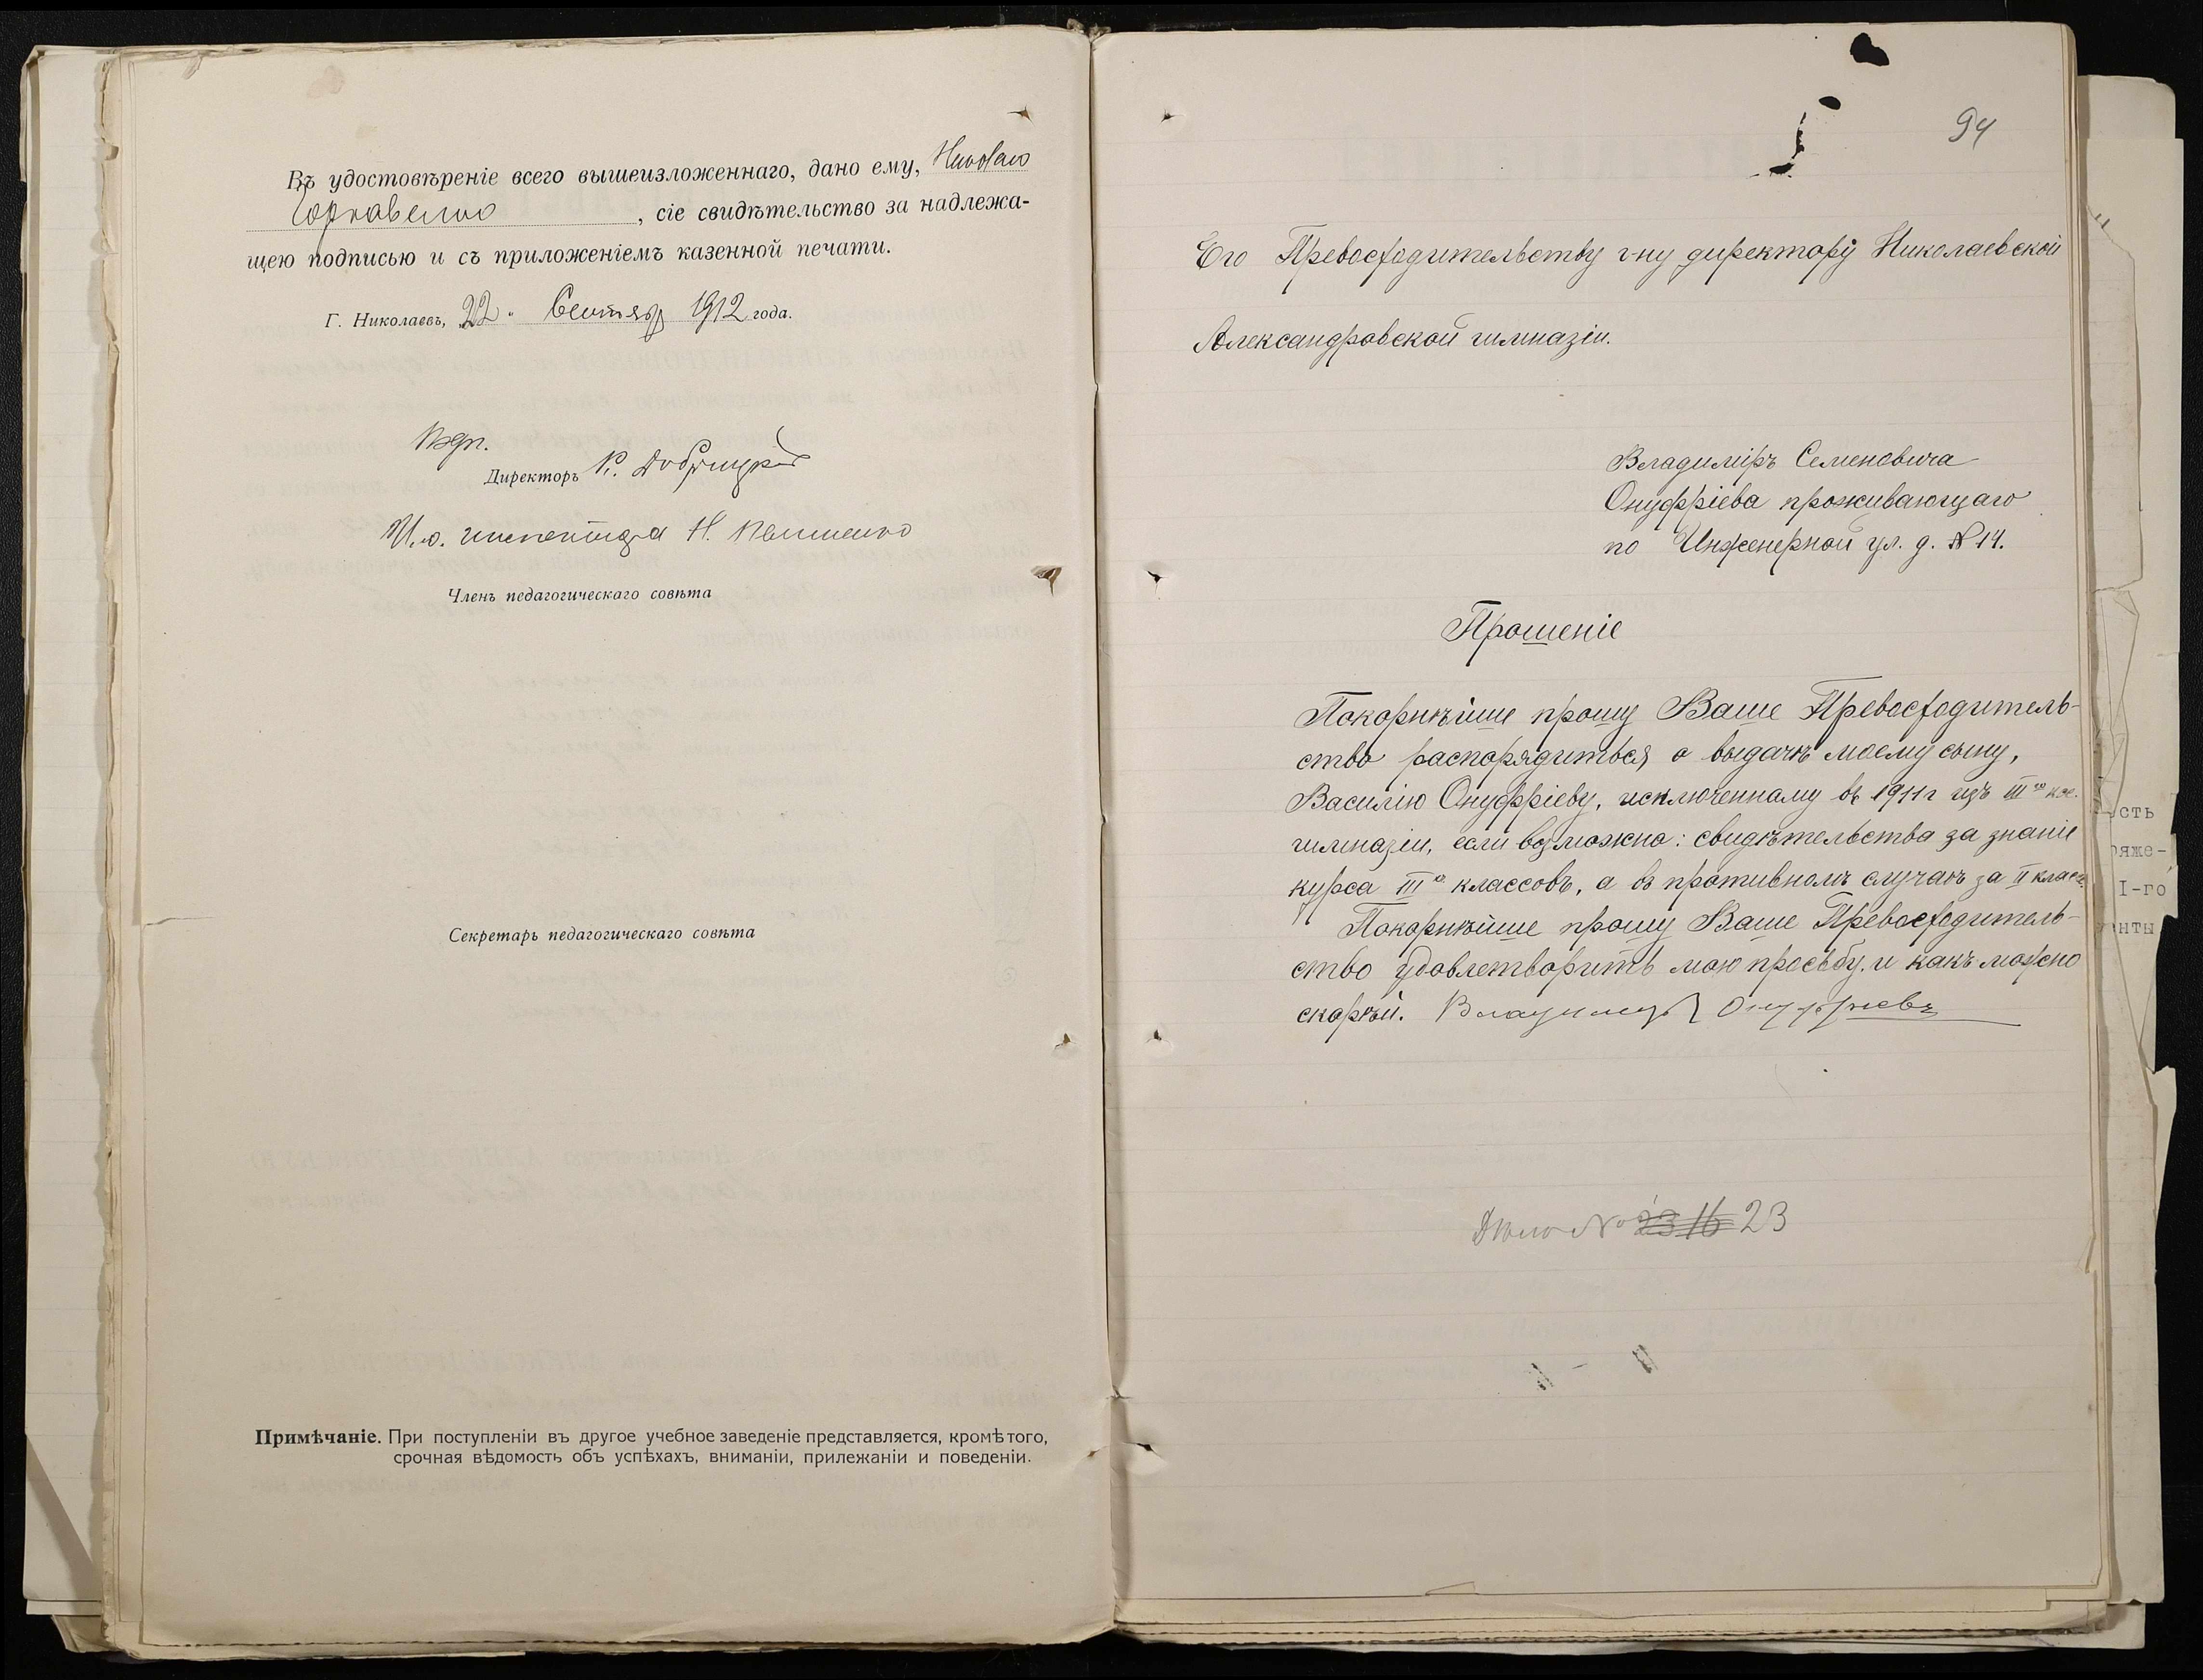 Въ удостовѣреніе всего вышеизложеннаго, дано ему, Николаю
, сіе свидѣтельство за надлежа-
щею подписью и съ приложеніемъ казенной печати.
Г. Николаевъ, 22 Сентяр 1912 года.
Директоръ К.
И.о. инспектора Н.
Членъ педагогическаго совѣта
Секретарь педагогическаго совѣта
Примѣчаніе. При поступленіи въ другое учебное заведеніе представляется, кромѣ того,
срочная вѣдомость объ успѣхахъ, вниманіи, прилежаніи и поведеніи.
94
Его Превосходительству г-ну директору Николаевской
Александровской гимназіи.
Владиміръ Семеновича
Онуфріева проживающаго
по Инженерной ул. д. № 14.
Прошеніе
Покорнѣйше прошу Ваше Превосходитель-
ство распорядиться о выдачѣ моему сыну,
Василію Онуфріеву, исключенному въ 1911 г изъ III го кл.
гимназіи, если возможно: свидѣтельства за знаніе
курса III х классовъ, а въ противномъ случаѣ за II класс.
Покорнѣйше прошу Ваше Превосходитель-
ство удовлетворить мою просьбу. и какъ можно
скорѣй. Владимиръ Онуфриевъ
Дѣло № 23 16 23
сть
ряже-
I-го
нты